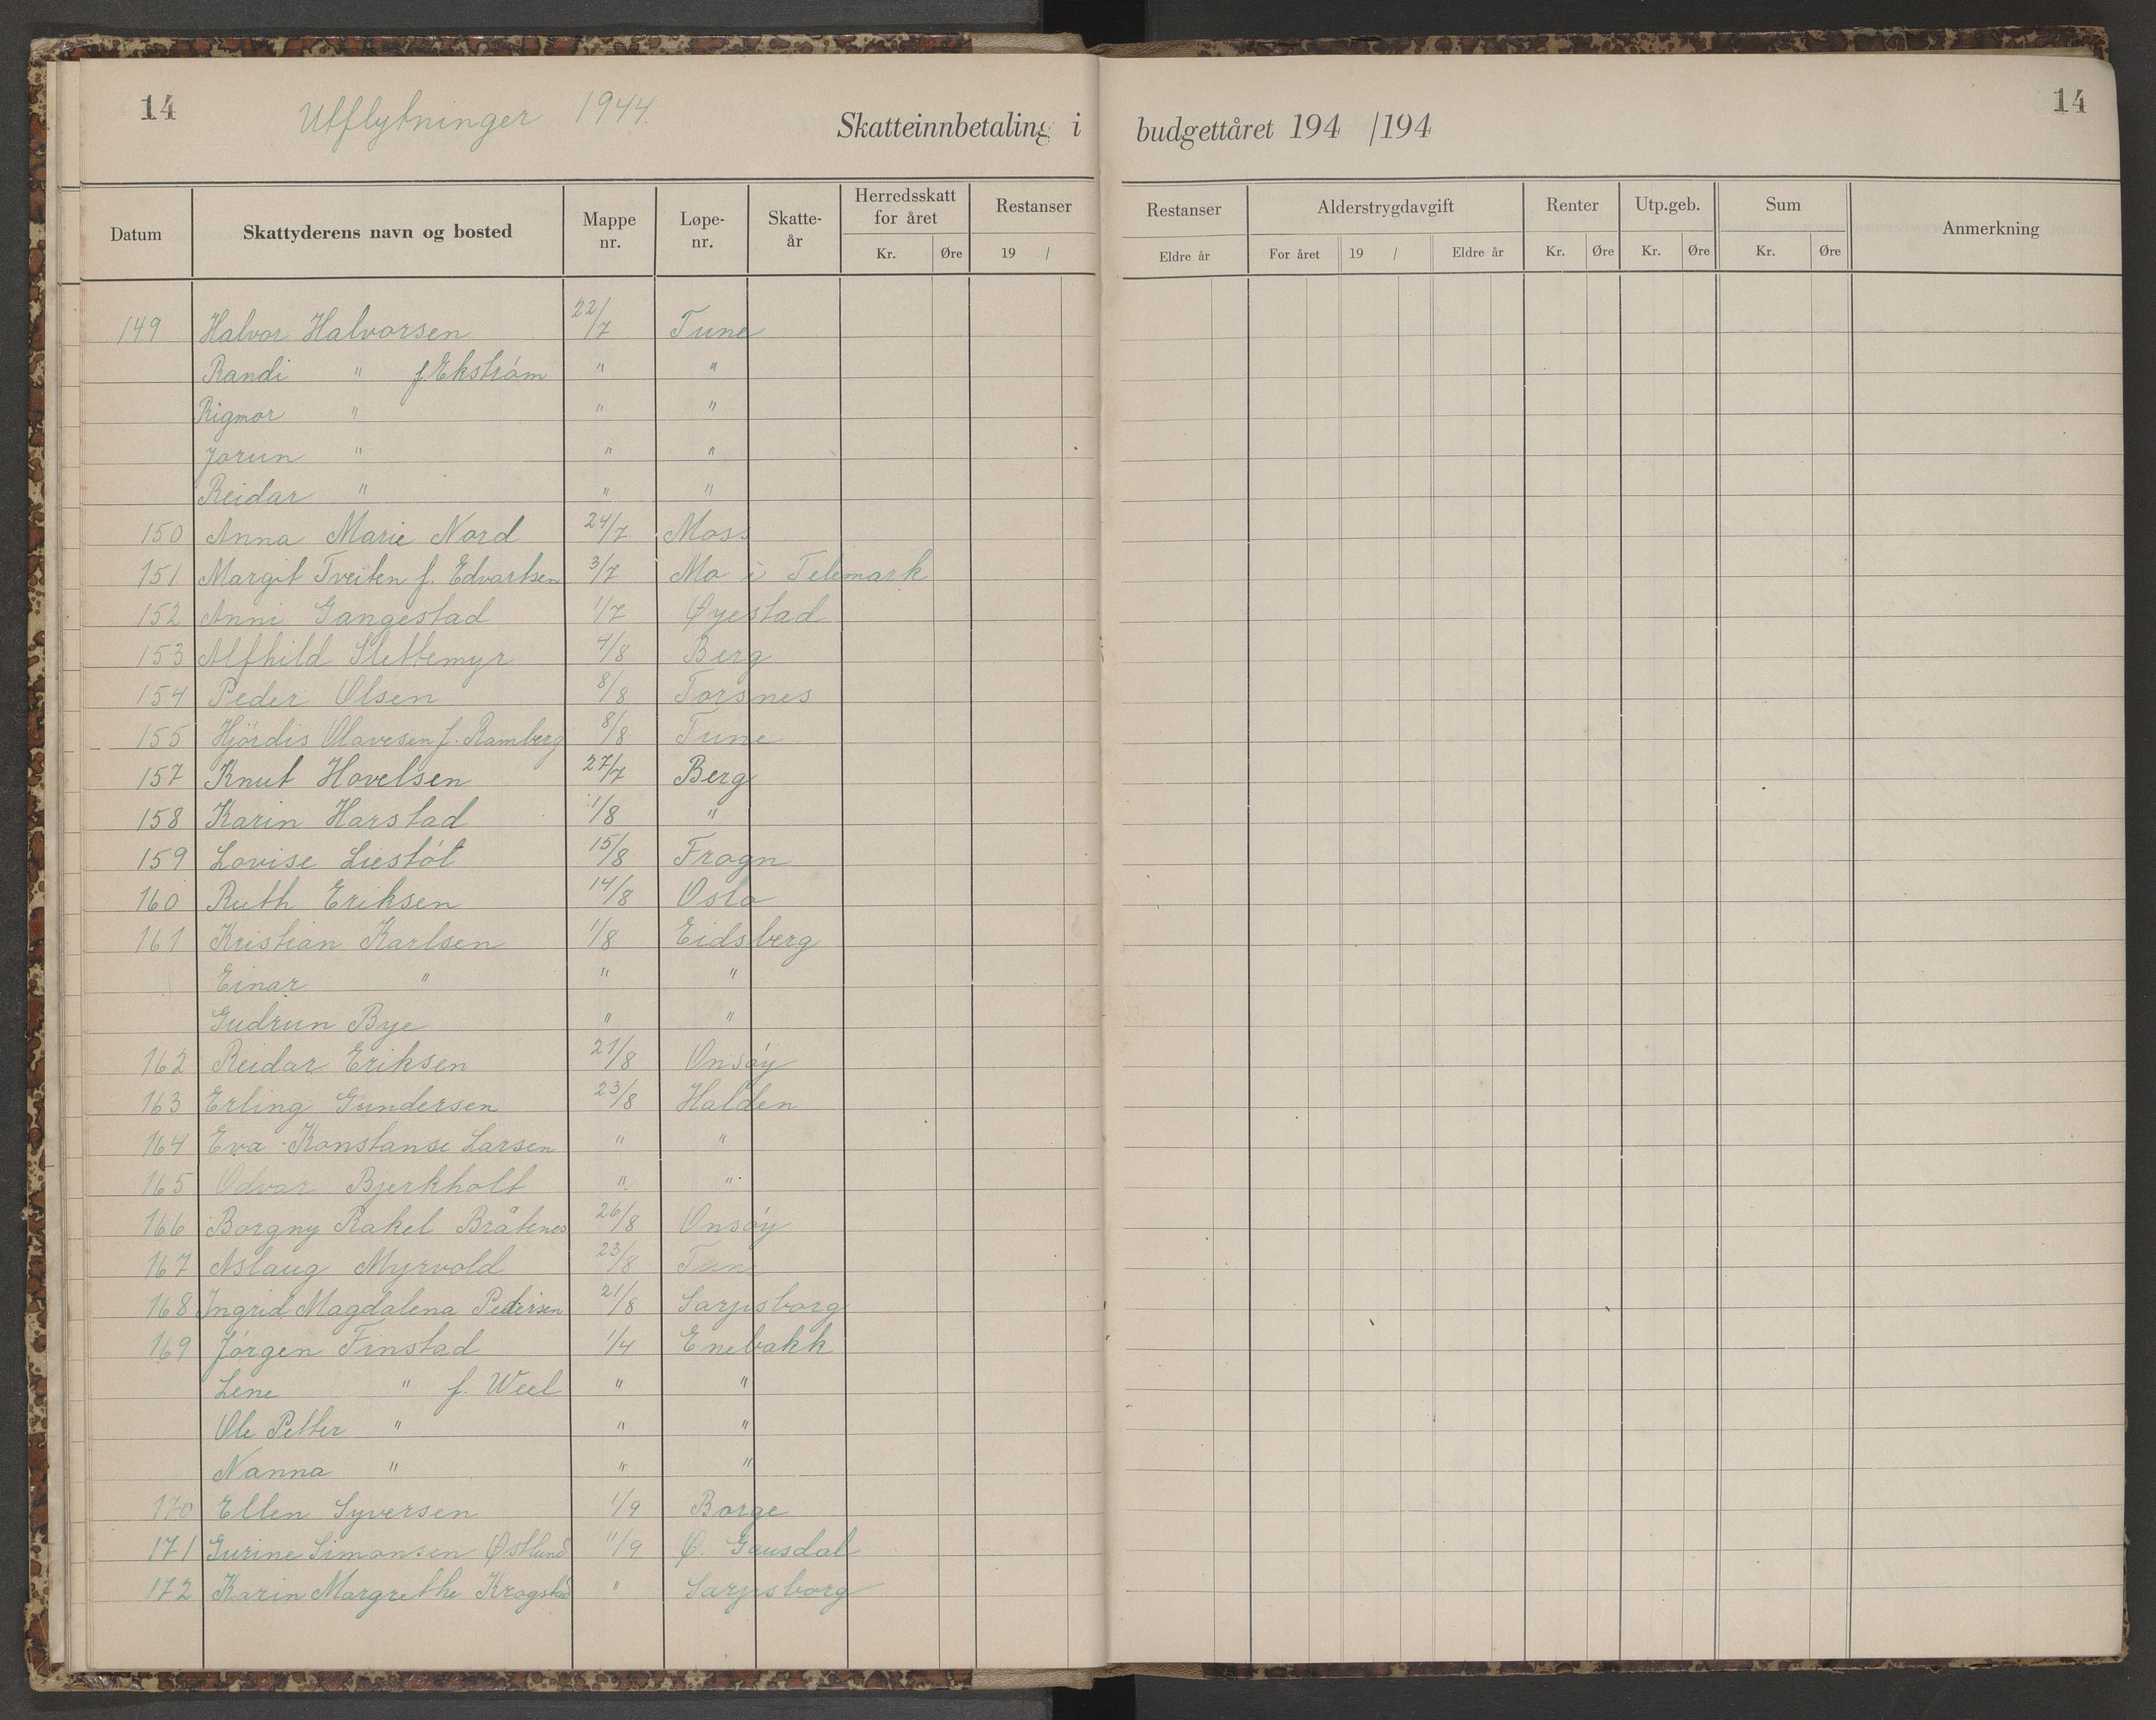 14 Utflytninger 1944. 14
Skatteinnbetaling i budgettåret 194 /194
Datum Skattyderens navn og bosted Mappe nr. Løpe-nr. Skatte-år Herredsskatt for året Kr. Øre Restanser 19 / Restanser Eldre år Alderstrygdavgift For året 19 / Eldre år Renter Kr. Øre Utp.geb. Kr. Øre Sum Kr. Øre Anmerkning
149 Halvor Halvorsen 22/7 Tune
Randi " f. Ekström " "
Rigmor " " "
Jorun " " "
Reidar " " "
150 Anna Marie Nord 24/7 Moss
151 Margit Tveiten f. Edvartsen 3/7 Mo i Telemark
152 Anni Gangestad 1/7 Øyestad
153 Alfhild Slettemyr 4/8 Berg
154 Peder Olsen 8/8 Torsnes
155 Hjördis Olavesen f. Ramberg 8/8 Tune
157 Knut Hovelsen 27/7 Berg
158 Karin Harstad 1/8 "
159 Lovise Liestöl 15/8 Frogn
160 Ruth Eriksen 14/8 Oslo
161 Kristian Karlsen 1/8 Eidsberg
Einar " " "
Gudrun Bye " "
162 Reidar Eriksen 21/8 Onsöy
163 Erling Gundersen 23/8 Halden
164 Eva Konstanse Larsen " "
165 Odvar Bjerkholt " "
166 Borgny Rakel Bråtenes 26/8 Onsöy
167 Aslaug Myrvold 23/8 Tune
168 Ingrid Magdalena Pedersen 21/8 Sarpsborg
169 Jörgen Finstad 1/4 Enebakk
Lene " f. Weel " "
Ole Petter " " "
Nanna " " "
170 Ellen Syversen 1/9 Borge
171 Gurine Simonsen Østlund 11/9 Ø. Gausdal
172 Karin Margrethe Krogstad " Sarpsborg